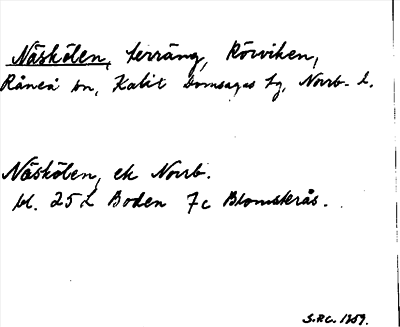 Näskölen, terräng, Rörviken,
Råneå sn, Kalix Domsagas tg, Norrb. l.
Näskölen, ek Norrb.
bl. 25 L Boden 7c Blomskrås.
S.R.C. 1959.